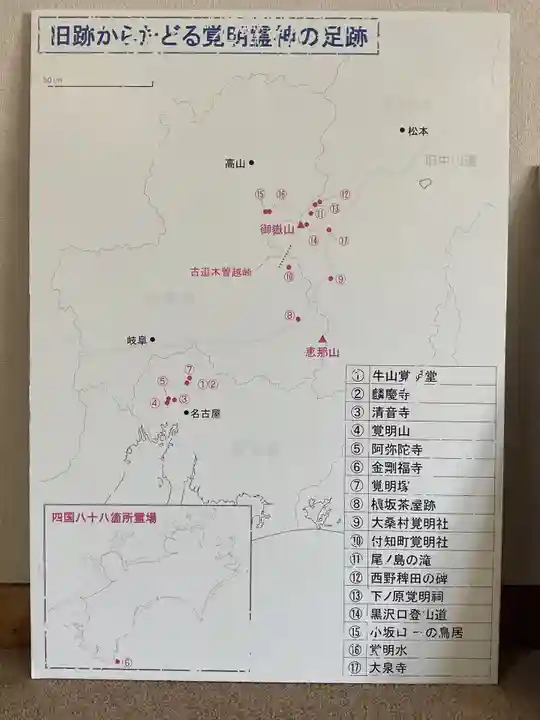 旧跡からたどる覚明霊神の足跡
50km
松本
高山
旧中山道
⑮ ⑯ ⑫
⑪ ⑬
御嶽山
⑭ ⑰
古道木曽越峠
⑩ ⑨
⑧
岐阜
恵那山
⑦
⑤ ①②
④ ③
名古屋
① 牛山覚明堂
② 麟慶寺
③ 清音寺
④ 覚明山
⑤ 阿弥陀寺
⑥ 金剛福寺
⑦ 覚明塚
⑧ 槙坂茶屋跡
⑨ 大桑村覚明社
⑩ 付知町覚明社
⑪ 尾ノ島の滝
⑫ 西野稗田の碑
⑬ 下ノ原覚明祠
⑭ 黒沢口登山道
⑮ 小坂口一の鳥居
⑯ 覚明水
⑰ 大泉寺
四国八十八箇所霊場
⑥